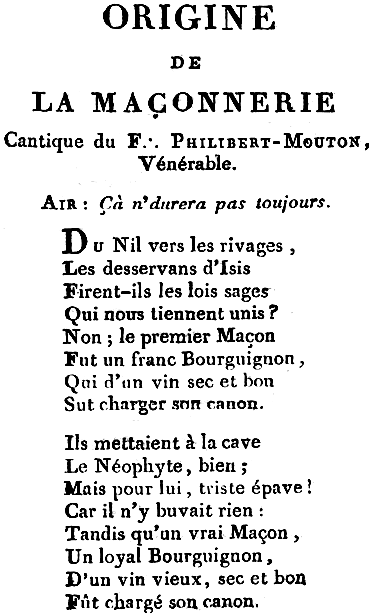 ORIGINE
DE
LA MAÇONNERIE
Cantique du F∴ PHILIBERT-MOUTON,
Vénérable.
AIR : Çà n'durera pas toujours.
Du Nil vers les rivages,
Les desservans d'Isis
Firent-ils les lois sages
Qui nous tiennent unis ?
Non ; le premier Maçon
Fut un franc Bourguignon,
Qui d'un vin sec et bon
Sut charger son canon.
Ils mettaient à la cave
Le Néophyte, bien ;
Mais pour lui, triste épave !
Car il n'y buvait rien :
Tandis qu'un vrai Maçon,
Un loyal Bourguignon,
D'un vin vieux, sec et bon
Fût chargé son canon.